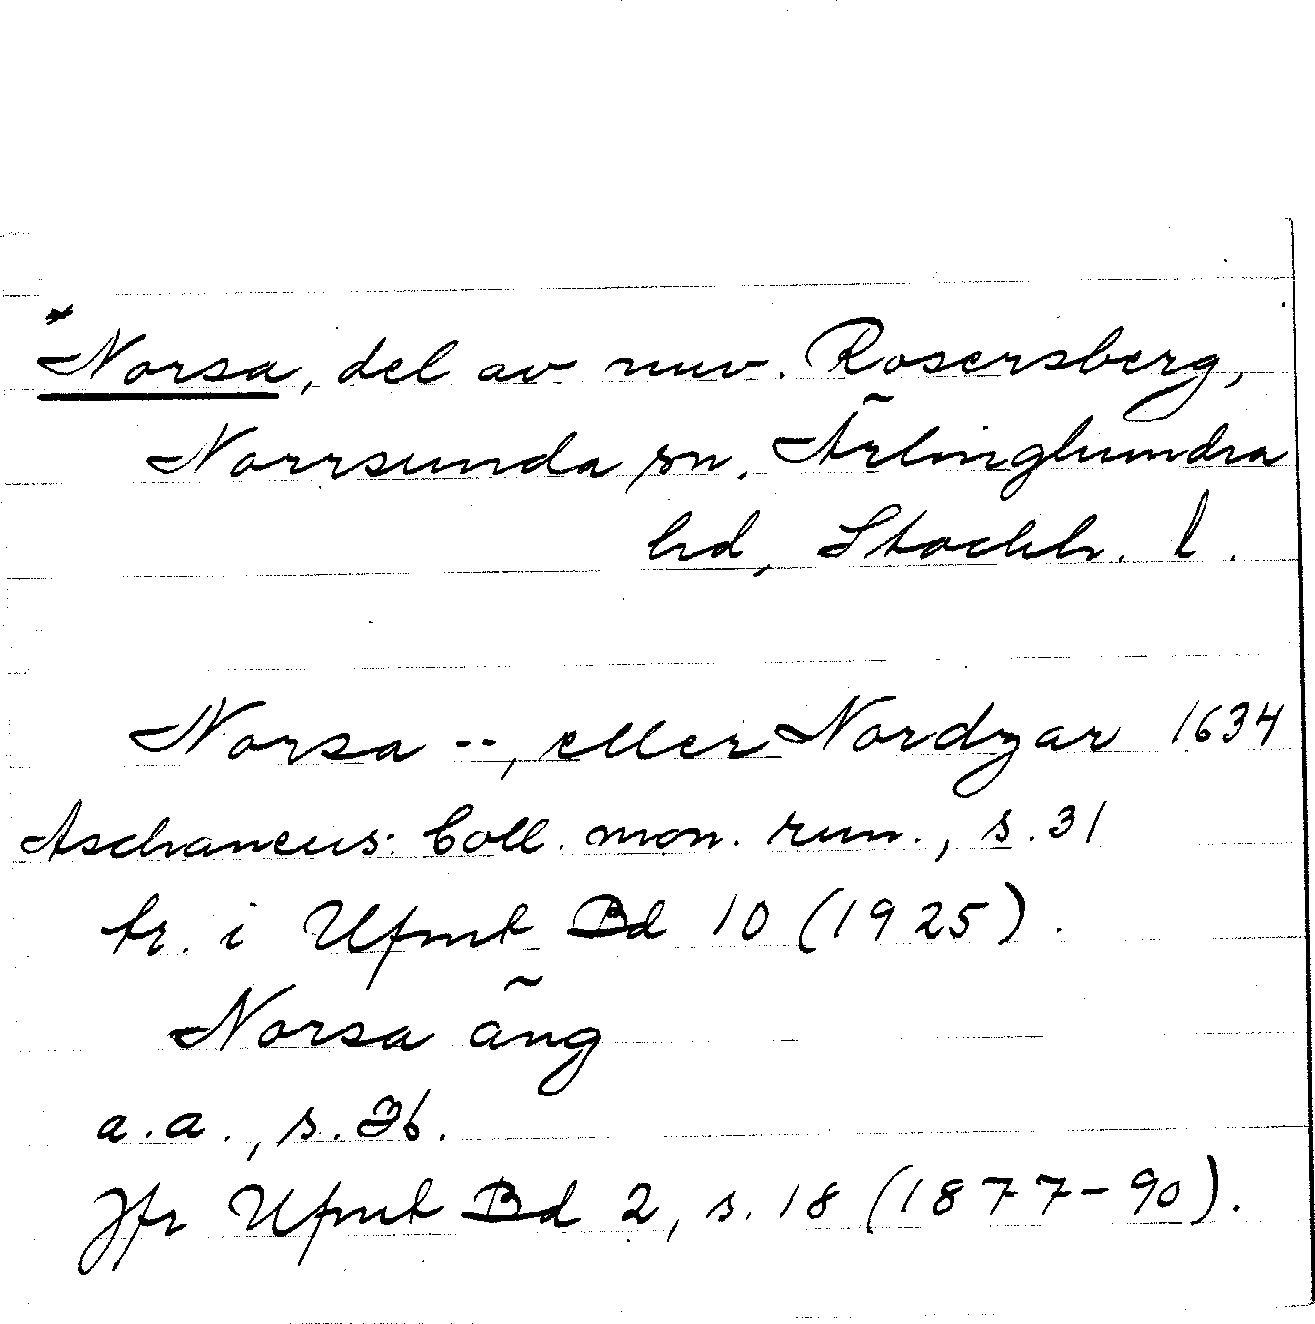 *Norsa, del av nuv. Rosersberg,
Norrsunda sn. Ärlinghundra
hd, Stockh. l.
Norsa --, eller Nordzar 1634
Aschaneus: Coll. mon. run., s. 31
tr. i Ufmt Bd 10 (1925).
Norsa äng
a.a., s. 36.
Jfr Ufmt Bd 2, s. 18 (1877-90).